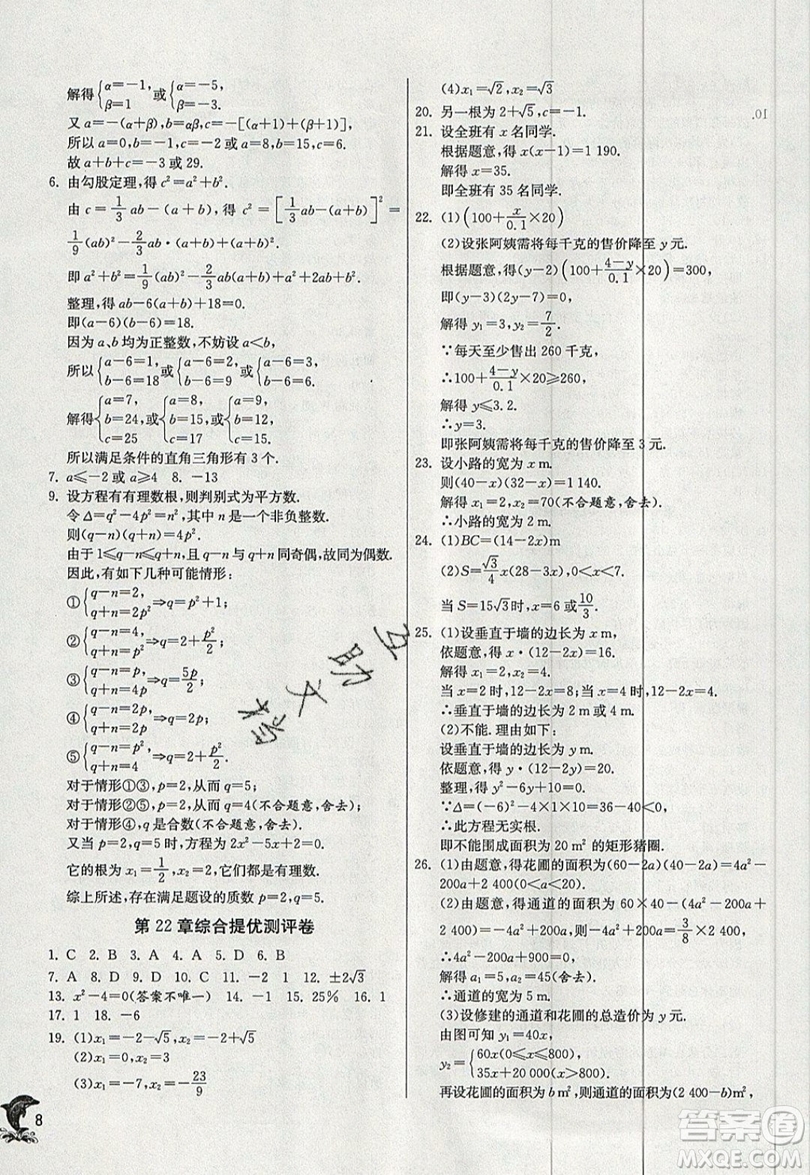 解得{α=-1, β=1 或{α=-5, β=-3.
又 a=-(α+β),b=αβ,c=-[(α+1)+(β+1)],
所以 a=0,b=-1,c=-2 或 a=8,b=15,c=6.
故 a+b+c=-3 或 29.
6. 由勾股定理,得 c²=a²+b².
由 c=1/3 ab-(a+b),得 c²=[1/3 ab-(a+b)]²=
1/9(ab)²-2/3 ab(a+b)+(a+b)².
即 a²+b²=1/9(ab)²-2/3 ab(a+b)+a²+2ab+b².
整理,得 ab-6(a+b)+18=0.
即(a-6)(b-6)=18.
因为 a、b 均为正整数,不妨设 a<b,
所以{a-6=1, b-6=18 或{a-6=2, b-6=9 或{a-6=3, b-6=6,
解得{a=7, b=24, c=25 或{a=8, b=15, c=17 或{a=9, b=12, c=15.
所以满足条件的直角三角形有 3 个.
7. a≤-2 或 a≥4 8. -13
9. 设方程有有理数根,则判别式为平方数.
令 Δ=q²-4p²=n²,其中 n 是一个非负整数.
则(q-n)(q+n)=4p².
由于 1≤q-n≤q+n,且 q-n 与 q+n 同奇偶,故同为偶数.
因此,有如下几种可能情形:
①{q-n=2, q+n=2p² ⇒q=p²+1;
②{q-n=4, q+n=p² ⇒q=2+p²/2;
③{q-n=p, q+n=4p ⇒q=5p/2;
④{q-n=2p, q+n=2p ⇒q=2p;
⑤{q-n=p², q+n=4 ⇒q=2+p²/2.
对于情形①③,p=2,从而 q=5;
对于情形②⑤,p=2,从而 q=4(不合题意,舍去);
对于情形④,q 是合数(不合题意,舍去).
又当 p=2,q=5 时,方程为 2x²-5x+2=0,
它的根为 x₁=1/2,x₂=2,它们都是有理数.
综上所述,存在满足题设的质数 p=2,q=5.
第 22 章综合提优测评卷
1. C 2. B 3. A 4. A 5. D 6. B
7. A 8. D 9. B 10. A 11. -2 12. ±2√3
13. x²-4=0(答案不唯一) 14. -1 15. 25% 16. 1
17. 1 18. -6
19. (1)x₁=-2-√5,x₂=-2+√5
(2)x₁=0,x₂=3
(3)x₁=-7,x₂=-23/9
8
(4)x₁=√2,x₂=√3
20. 另一根为 2+√5,c=-1.
21. 设全班有 x 名同学.
根据题意,得 x(x-1)=1 190.
解得 x=35.
即全班有 35 名同学.
22. (1)(100+x/0.1×20)
(2)设张阿姨需将每千克的售价降至 y 元.
根据题意,得(y-2)(100+4-y/0.1×20)=300,
即(y-3)(2y-7)=0.
解得 y₁=3,y₂=7/2.
∵每天至少售出 260 千克,
∴100+4-y/0.1×20≥260,
解得 y≤3.2.
∴y=3.
即张阿姨需将每千克的售价降至 3 元.
23. 设小路的宽为 x m.
则(40-x)(32-x)=1 140.
解得 x₁=2,x₂=70(不合题意,舍去).
∴小路的宽为 2 m.
24. (1)BC=(14-2x)m
(2)S=√3/4 x(28-3x),0<x<7
当 S=15√3时,x=6 或10/3
25. (1)设垂直于墙的边长为 x m,
依题意,得 x·(12-2x)=16.
解得 x₁=2,x₂=4.
当 x=2 时,12-2x=8;当 x=4 时,12-2x=4.
∴垂直于墙的边长为 2 m 或 4 m.
(2)不能.理由如下:
设垂直于墙的边长为 y m.
依题意,得 y·(12-2y)=20.
整理,得 y²-6y+10=0.
∵Δ=(-6)²-4×1×10=36-40<0,
∴此方程无实根.
即不能围成面积为 20 m² 的矩形猪圈.
26. (1)由题意,得花圃的面积为(60-2a)(40-2a)=4a²-
200a+2 400(0<a<20).
(2)由题意,得通道的面积为 60×40-(4a²-200a+
2 400)=-4a²+200a,则-4a²+200a=3/8×2 400,
即 4a²-200a+900=0,
解得 a₁=5,a₂=45(舍去).
∴通道的宽为 5 m.
(3)设修建的通道和花圃的总造价为 y 元.
由图可知 y₁=40x,
y₂={60x(0≤x≤800), 35x+20 000(x>800).
再设花圃的面积为 b m²,则通道的面积为(2 400-b)m²,
10.
互助文摘
答案圈
MXQE.COM